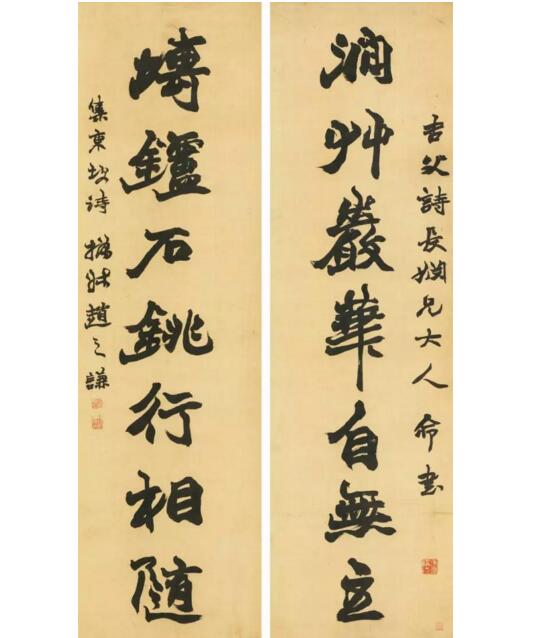 吉父詩長婣兄大人命書
澗艸巖華自無主
塼鑪石銚行相隨
集東坡詩 撝叔趙之謙